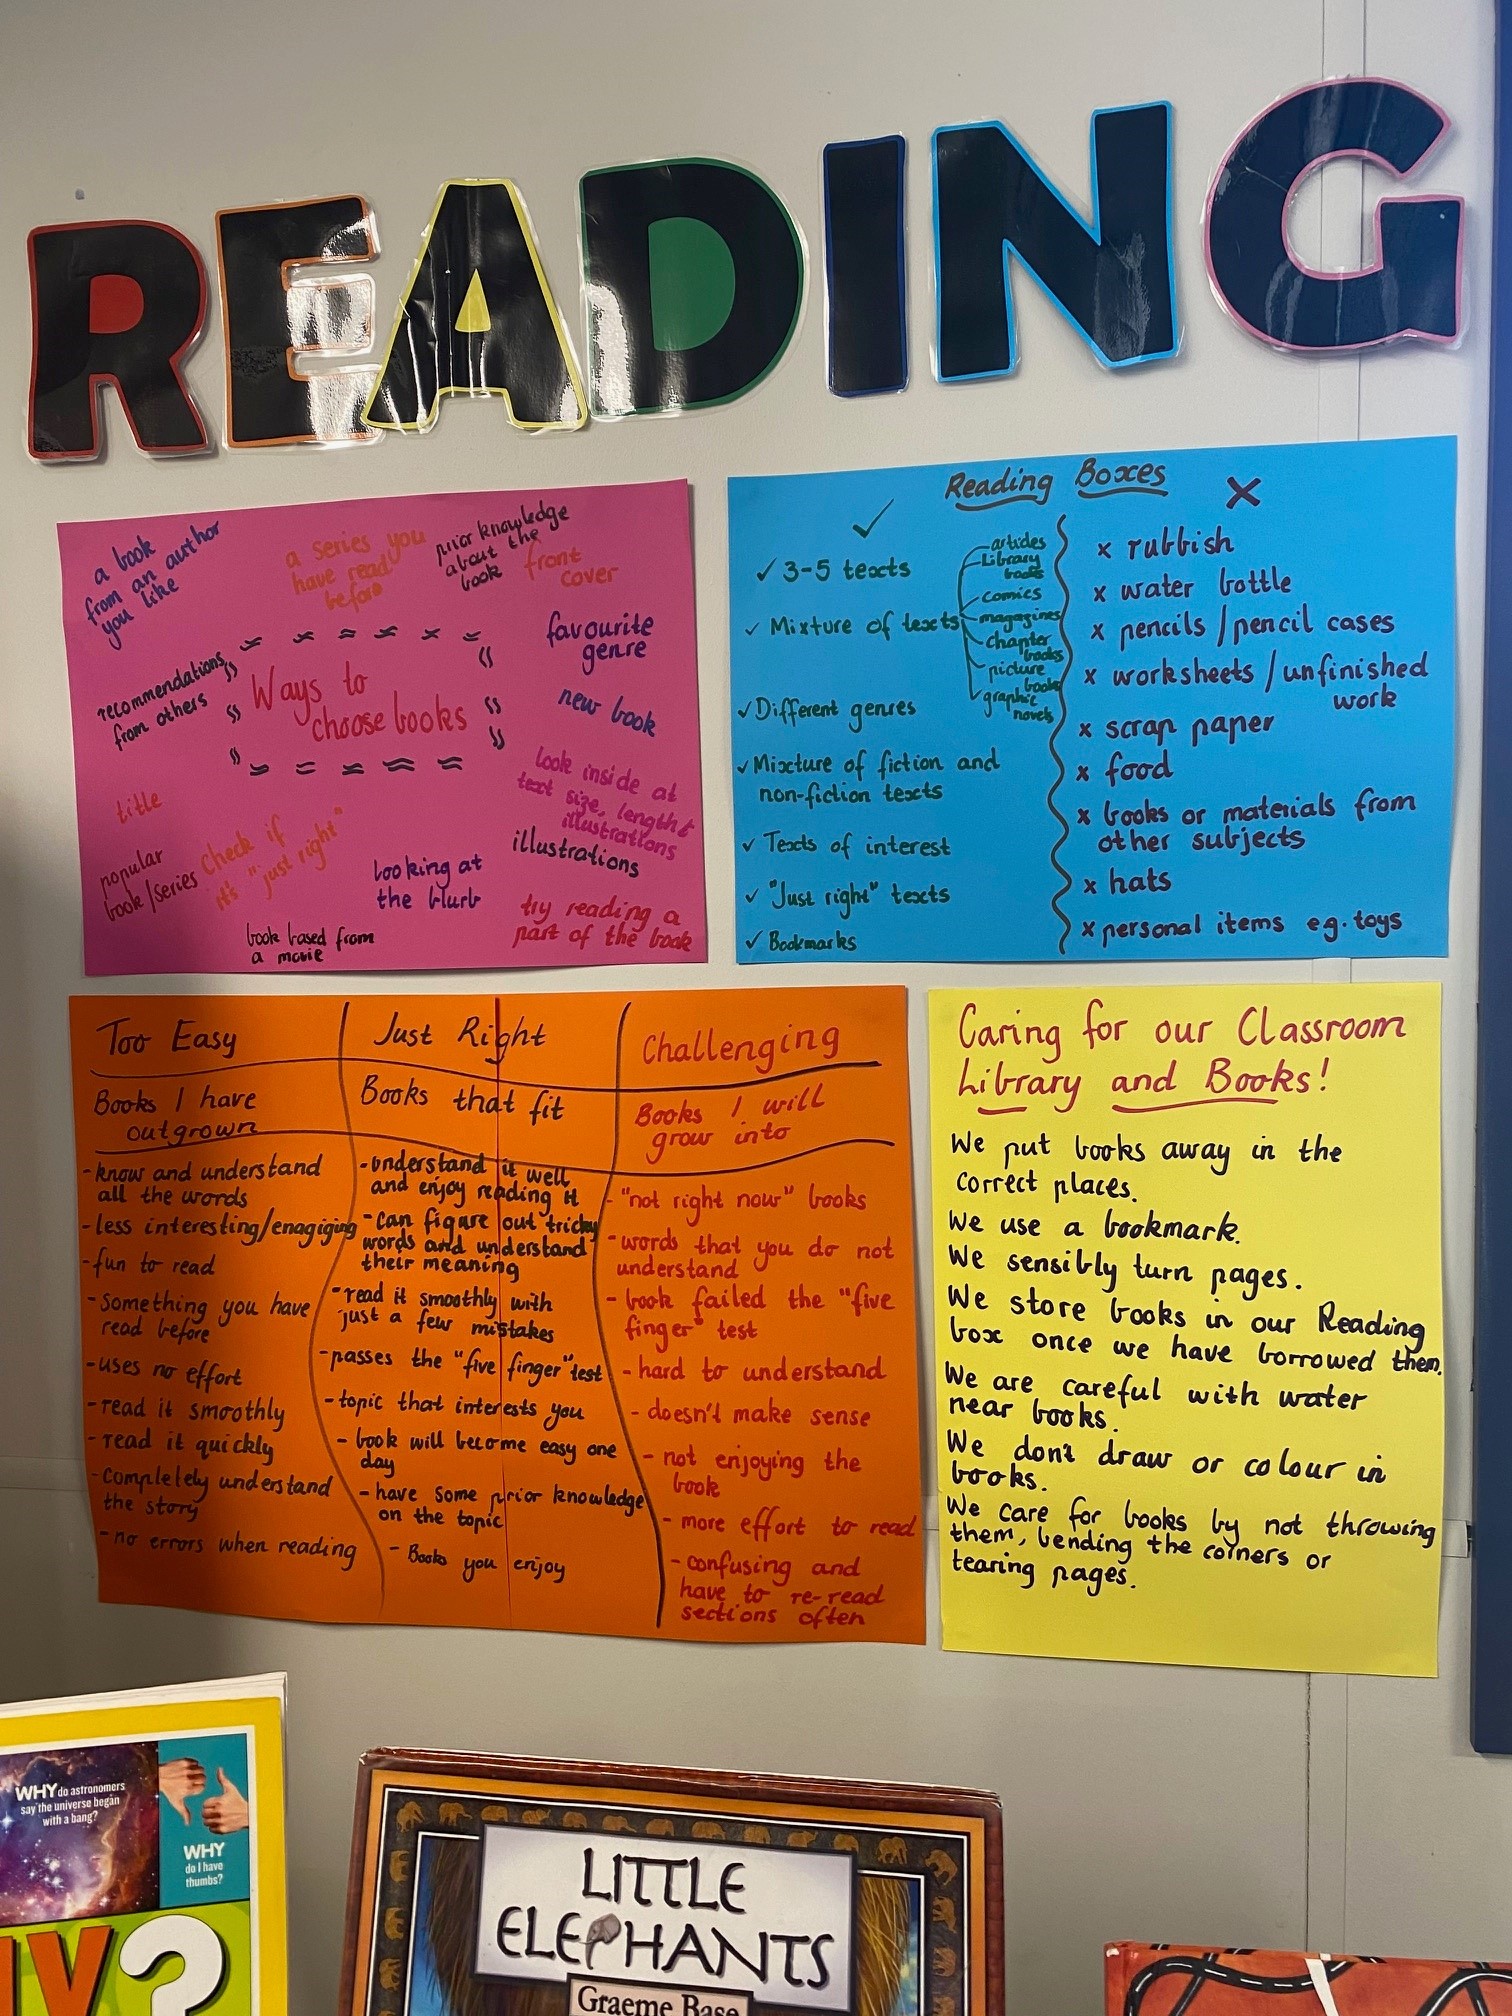 READING
a book
from an author
you like
a series you
have read
before
prior knowledge
about the
book
front
cover
favourite
genre
recommendations
from others
Ways to
choose books
new book
look inside at
text size, length &
illustrations
title
popular
book/series
check if
it's "just right"
looking at
the blurb
illustrations
book based from
a movie
try reading a
part of the book
Reading Boxes
✓
✓ 3-5 texts
✓ Mixture of texts
articles
Library
books
comics
magazines
chapter
books
picture
books
graphic
novels
✓ Different genres
✓ Mixture of fiction and
non-fiction texts
✓ Texts of interest
✓ "Just right" texts
✓ Bookmarks
X
x rubbish
x water bottle
x pencils / pencil cases
x worksheets / unfinished
work
x scrap paper
x food
x books or materials from
other subjects
x hats
x personal items eg. toys
Too Easy
Books I have
outgrown
- know and understand
all the words
- less interesting/enagiging
- fun to read
- something you have
read before
- uses no effort
- read it smoothly
- read it quickly
- completely understand
the story
- no errors when reading
Just Right
Books that fit
- understand it well
and enjoy reading it
- can figure out tricky
words and understand
their meaning
- read it smoothly with
just a few mistakes
- passes the "five finger" test
- topic that interests you
- book will become easy one
day
- have some prior knowledge
on the topic
- Books you enjoy
Challenging
Books I will
grow into
- "not right now" books
- words that you do not
understand
- book failed the "five
finger" test
- hard to understand
- doesn't make sense
- not enjoying the
book
- more effort to read
- confusing and
have to re-read
sections often
Caring for our Classroom
Library and Books!
We put books away in the
correct places.
We use a bookmark.
We sensibly turn pages.
We store books in our Reading
box once we have borrowed them.
We are careful with water
near books.
We don't draw or colour in
books.
We care for books by not throwing
them, bending the corners or
tearing pages.
WHY do astronomers
say the universe began
with a bang?
WHY
do I have
thumbs?
Y?
LITTLE
ELEPHANTS
Graeme Base